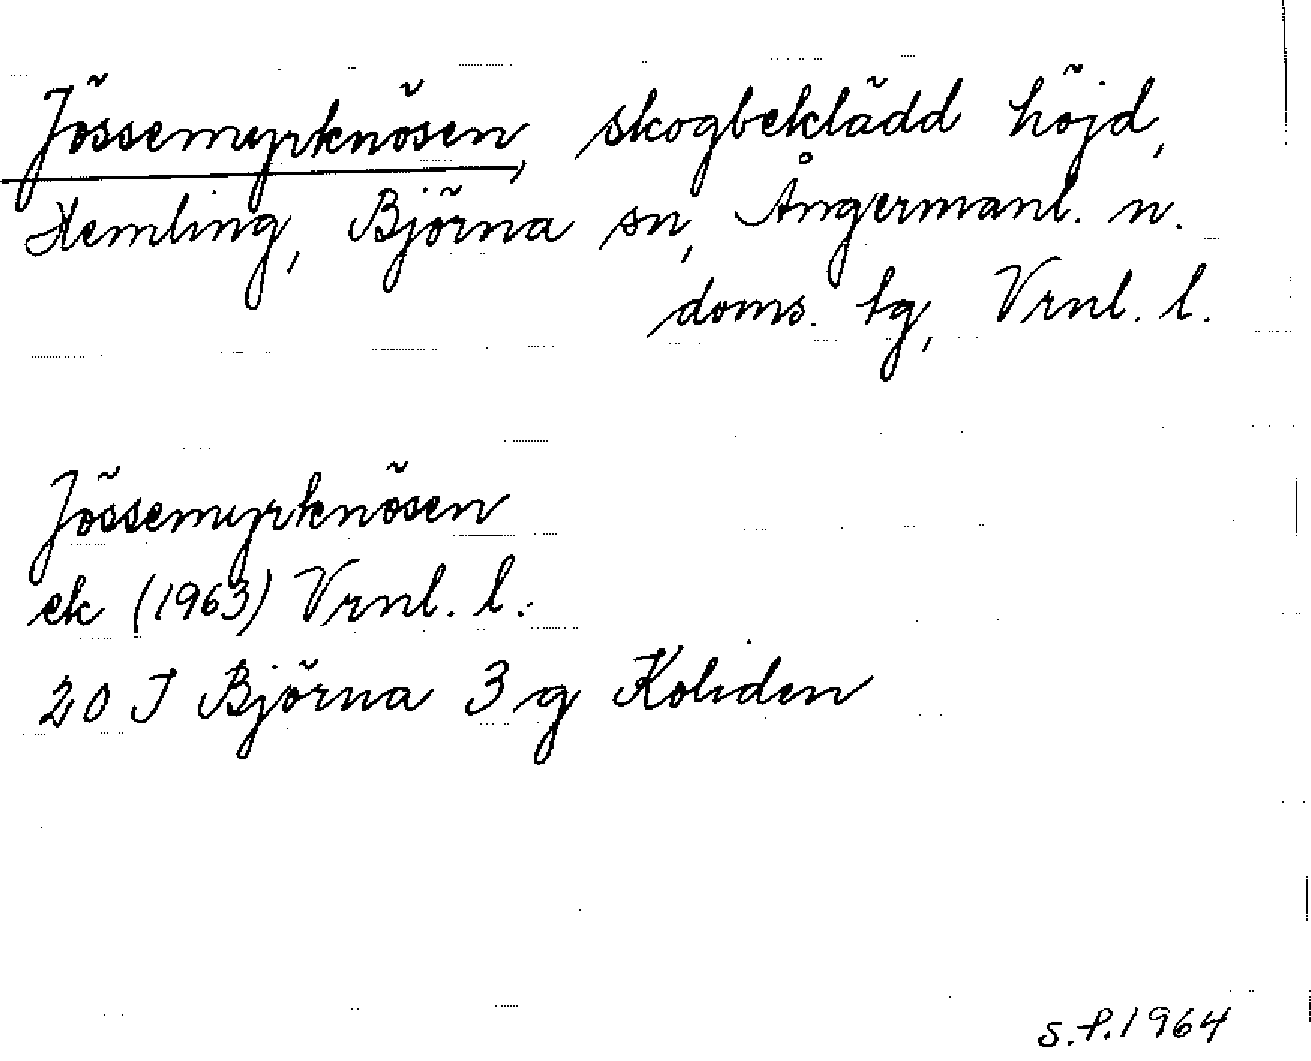 Jössemyrknösen, skogbeklädd höjd,
Hemling, Björna sn, Ångermanl. n.
doms. tg, Vrnl. l.
Jössemyrknösen
ek (1963) Vrnl. l.
20 I Björna 3 g Koliden
S.P. 1964